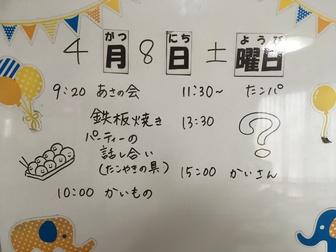 がつ にち ようび
4月8日 土曜日
9:20 あさの会
鉄板焼き
パーティーの
話し合い
(たこやきの具)
10:00 かいもの
11:30~ たンパ
13:30 ?
15:00 かいさん